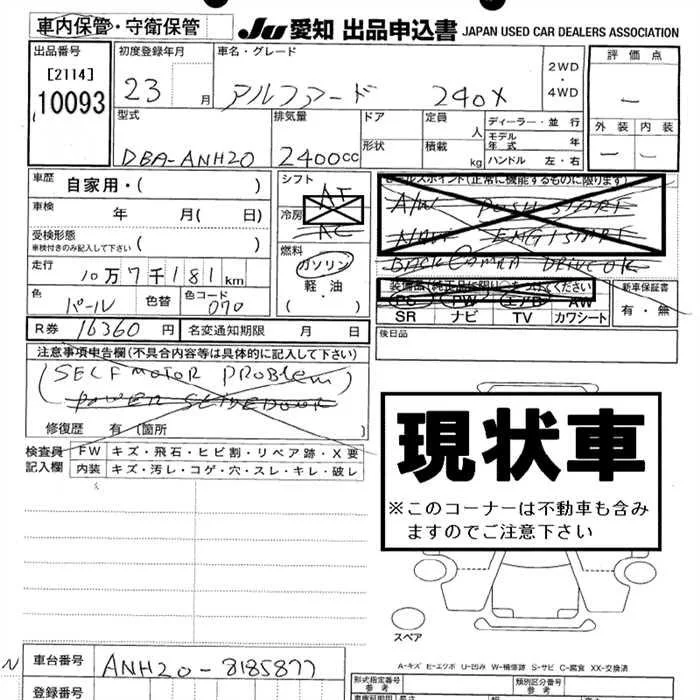 車内保管・守衛保管
JU 愛知 出品申込書 JAPAN USED CAR DEALERS ASSOCIATION
出品番号
[2114]
10093
初度登録年月
23 月
車名・グレード
アルファード 240X
2WD
・
4WD
評価点
—
外装 内装
—
型式
DBA-ANH20
排気量
2400cc
ドア
形状
定員
人
積載
kg
ディーラー・並行
モデル年式 年
ハンドル 左・右
車歴
自家用・( )
車検
年 月(日)
受検形態
車検付きのみ記入して下さい ( )
走行
10万7千181km
色
パール
色替
色コード
070
R券 16360円
名変通知期限 月 日
シフト
AT
冷房
AC
燃料
ガソリン
軽・油
( )
セールスポイント(正常に機能するものに限ります)
A/W PUSH START
NAVI ENGI START
BACK CAMRA DRIVE OK
装備品(純正品に限り○をつけてください)
PS PW エアB AW
SR ナビ TV カワシート
新車保証書
有・無
後日品
注意事項申告欄(不具合内容等は具体的に記入して下さい)
(SELF MOTOR PROBLEM)
POWER SLIDE DOOR
修復歴 有(箇所 )
検査員
記入欄
FW キズ・飛石・ヒビ割・リペア跡・X要
内装 キズ・汚レ・コゲ・穴・スレ・キレ・破レ
現状車
※このコーナーは不動車も含み
ますのでご注意下さい
スペア
A-キズ E-エクボ U-凹み W-補修跡 S-サビ C-腐食 XX-交換済
N
車台番号 ANH20-8185877
登録番号
形式指定番号
参考
類別区分番号
参考